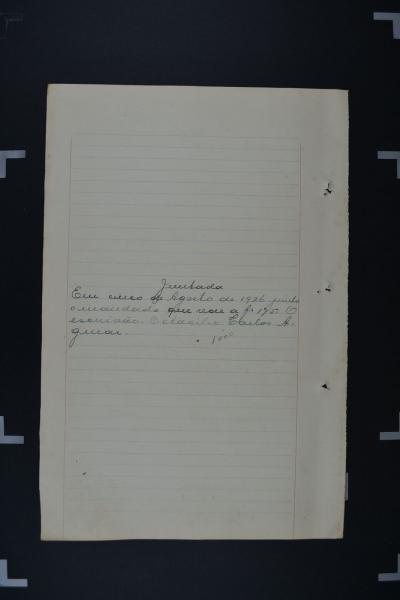 Juntada
Em cinco de Agosto de 1926 junto
o mandado que vae a fs 175. O
escrivão. Octacilio Carlos A-
guiar.
1000